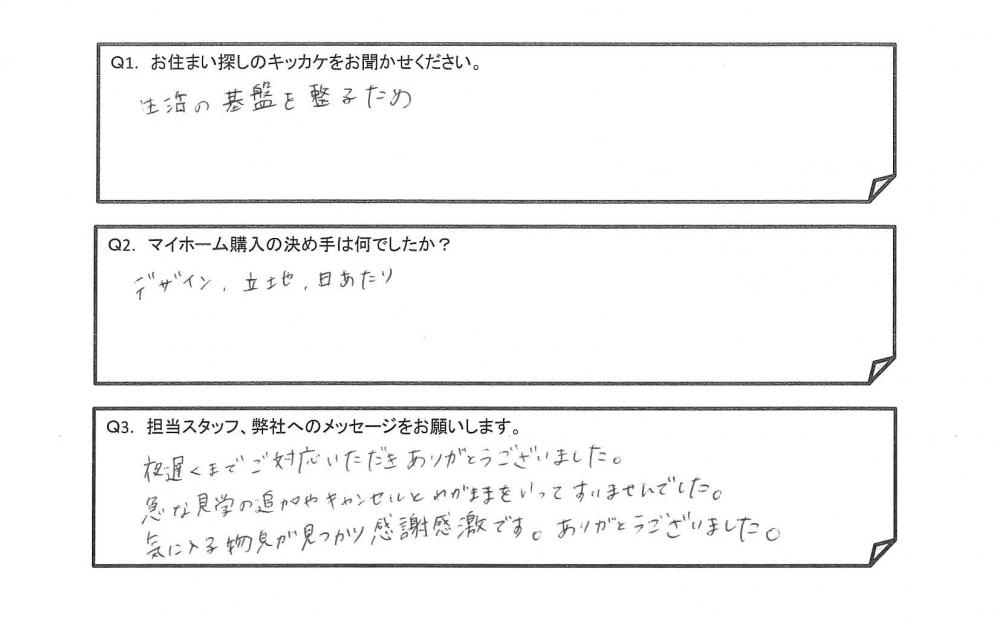 Q1. お住まい探しのキッカケをお聞かせください。
生活の基盤を整るため
Q2. マイホーム購入の決め手は何でしたか？
デザイン、立地、日あたり
Q3. 担当スタッフ、弊社へのメッセージをお願いします。
夜遅くまでご対応いただきありがとうございました。
急な見学の追加やキャンセルとわがままをいってすいませんでした。
気に入る物見が見つかり感謝感激です。ありがとうございました。